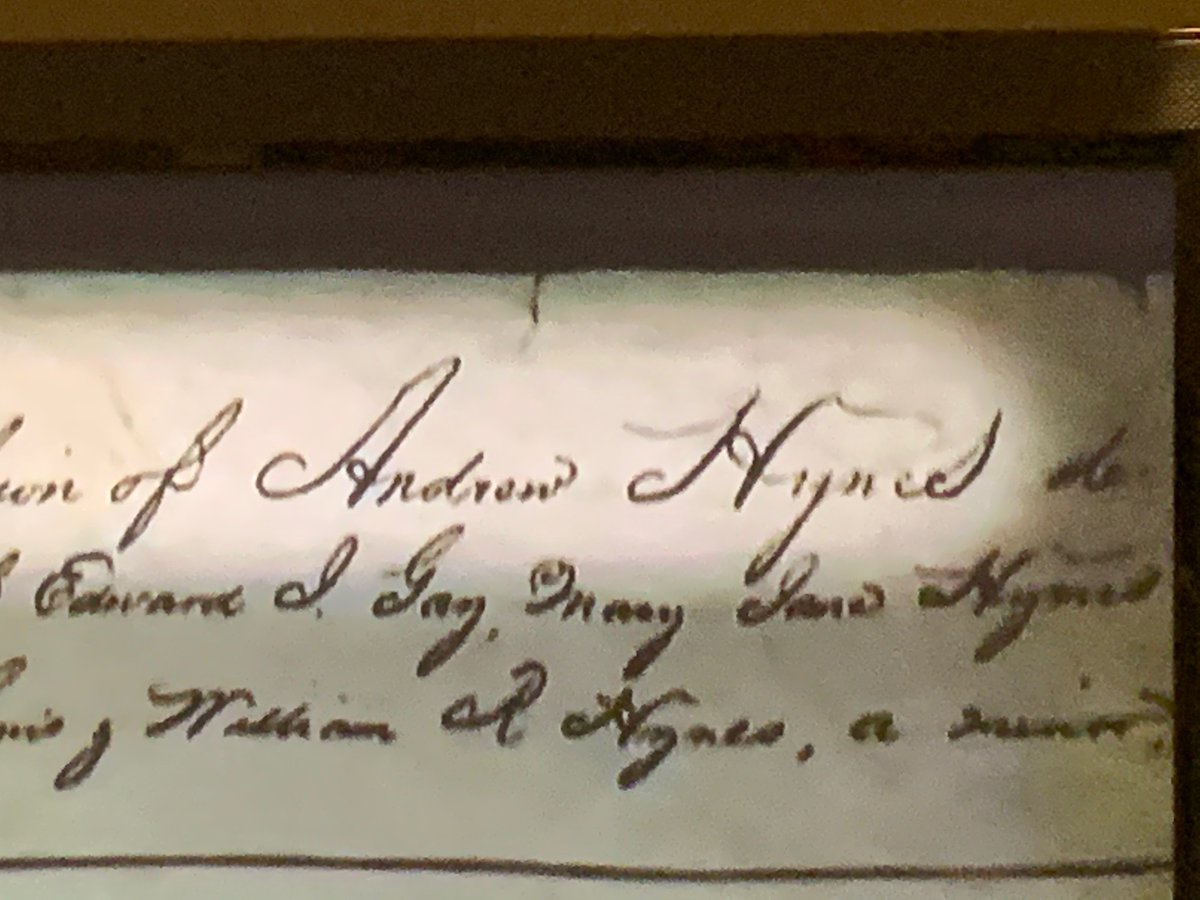 of Andrew Hynes de
Edward I. Gay, Mary Jane Hynes
William R Hynes, a minor,